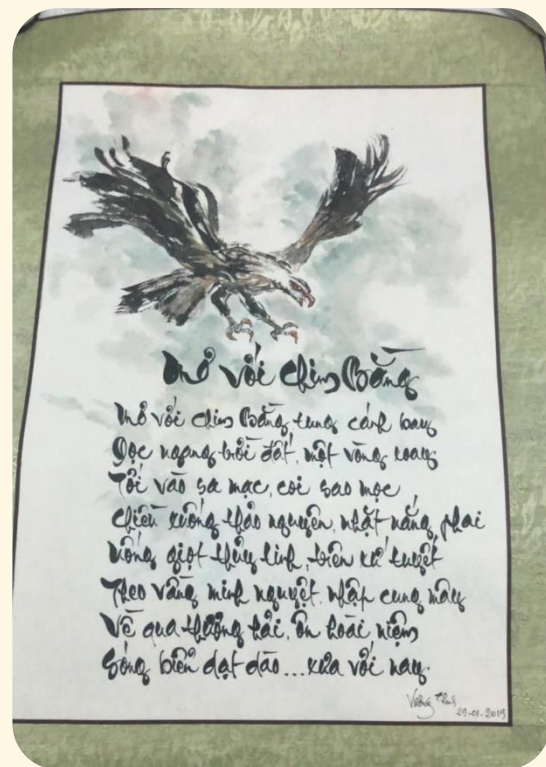 Mơ với chim Bằng
Mơ với chim Bằng tung cánh bay
Dọc ngang trời đất, một vòng xoay
Tối vào sa mạc, coi sao mọc
Chiều xuống thảo nguyên, nhặt nắng phai
Uống giọt thủy tinh, trên xứ tuyết
Theo vầng minh nguyệt, nhập cung mây
Về qua thượng hải, ôn hoài niệm
Sóng biển dạt dào...xưa với nay.
Vương
29-01-2019